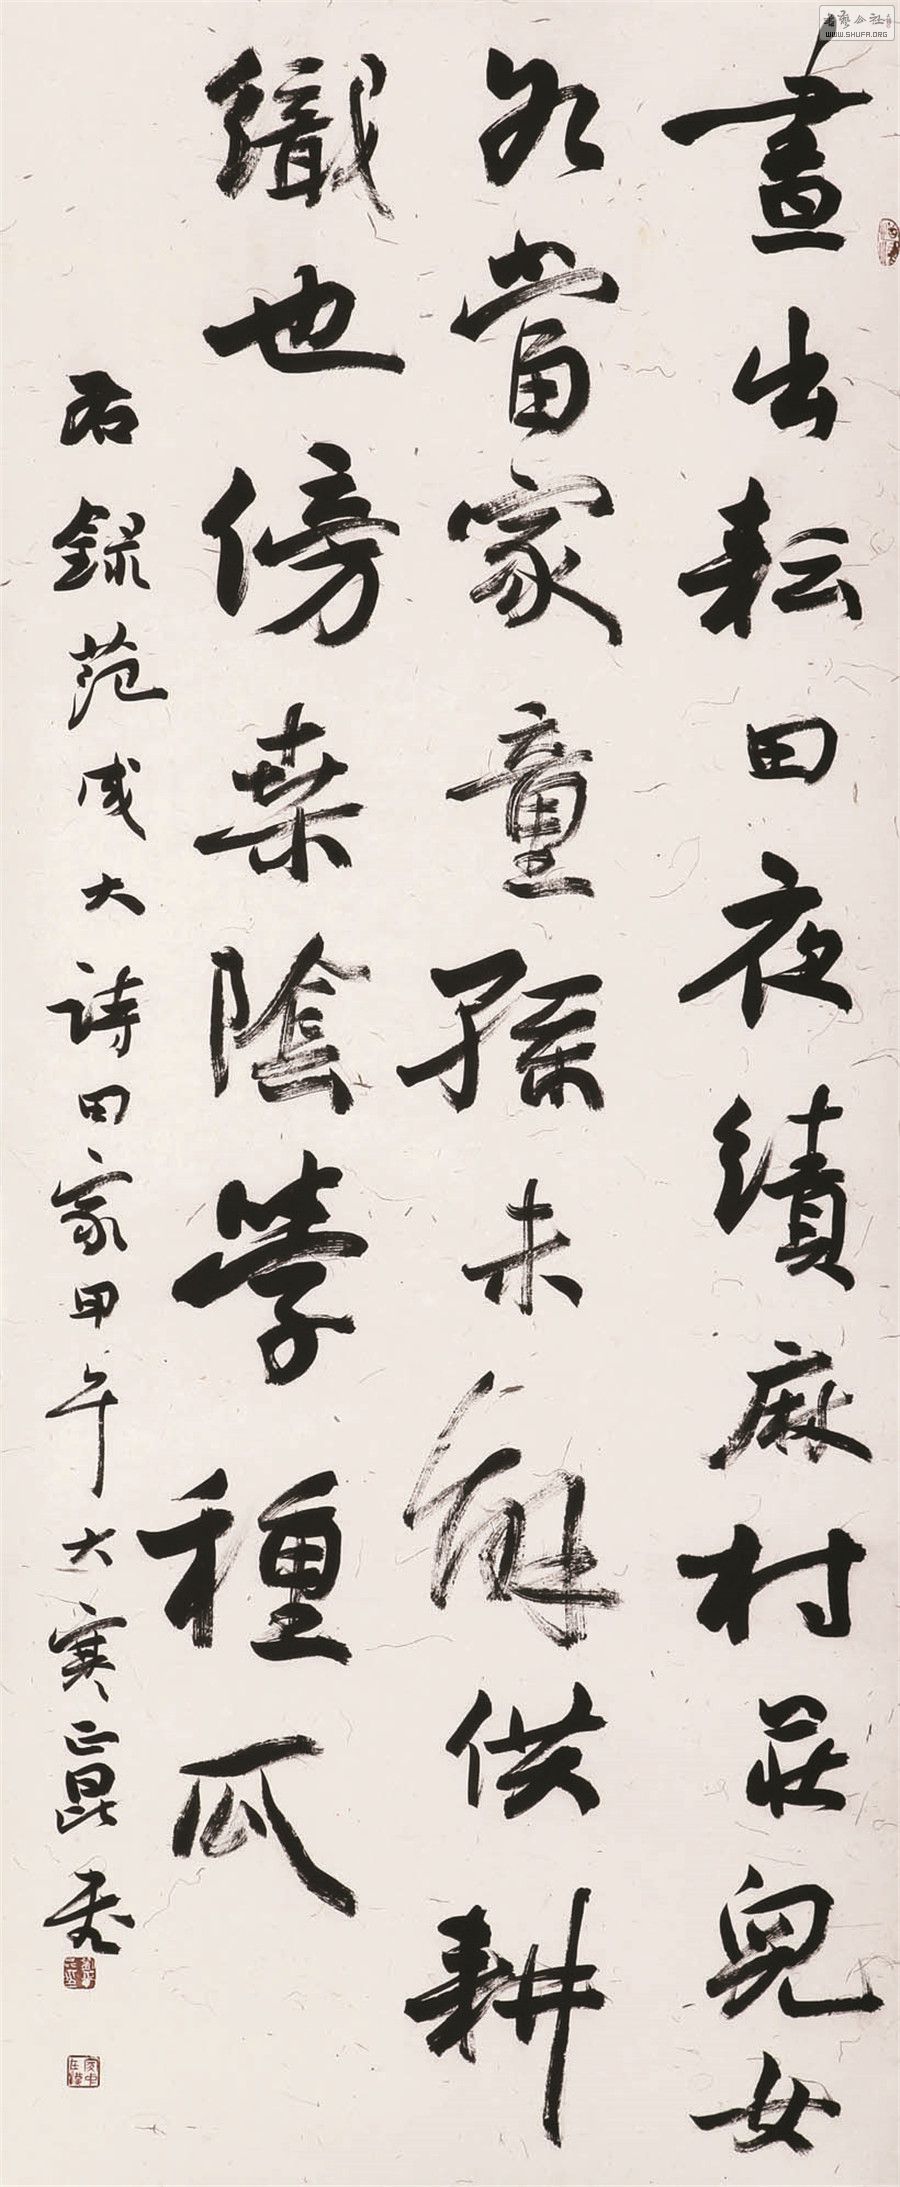 晝出耘田夜績麻村莊兒女
各當家童孫未解供耕
織也傍桑陰學種瓜
右録范成大詩田家甲午大寒正昆
WWW.SHUFA.ORG